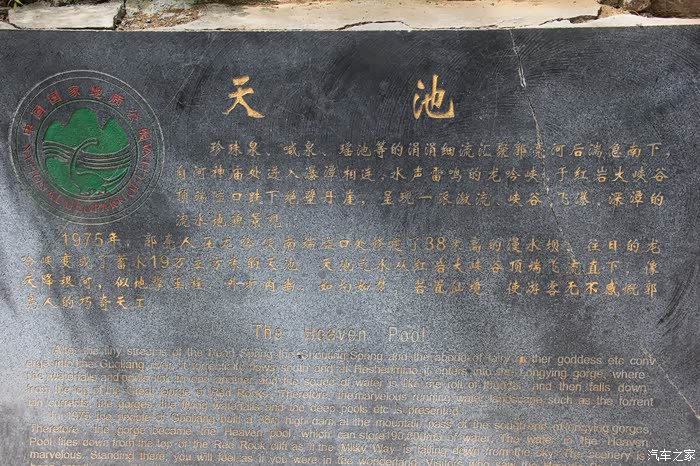 中国国家地质公园
天池
珍珠泉、喊泉、瑶池等的涓涓细流汇聚郭亮河后湍急南下,
自河神庙处进入瀑潭相连,水声雷鸣的龙吟峡,于红岩大峡谷
顶端 口跌下绝壁丹崖,呈现一派激流、峡谷、飞瀑、深潭的
流水地貌景观。
1975年,郭亮人在龙吟峡南端 口处修建了38米高的漫水坝,往日的龙
吟峡变成了蓄水19万立方米的天池。天池之水从红岩大峡谷顶端飞流直下,像
天降银河,似地 ,如幻如梦,若置仙境,使游客无不感慨郭
亮人的巧夺天工。
The Heaven Pool
After the tiny streams of the Pearl Spring the Shouting Spring and the abode of fairy mother goddess etc conv
erge into the Guoliang river, it torrentially flows south and at Heshenmiao, it enters into the Longying gorge, where
the waterfalls and pools link to one another and the sound of water is like the roll of thunder, and then falls down
from the top of the great gorge of Red Rocks. Therefore, the marvelous running water landscape such as the torrent
the gorges, the flying waterfalls and the deep pools etc is presented.
In 1975, the villagers of Guoliang built a 38m high dam at the mountain pass of the south end of longying gorges,
Therefore, the gorge became the Heaven pool, which can store190,000m3 of water. The water in the Heaven
Pool flies down from the top of the Red Rock cliff as if the Milky Way is falling down from the sky. The scenery is
marvelous. Standing there, you will feel as if you were in the wonderland.
汽车之家